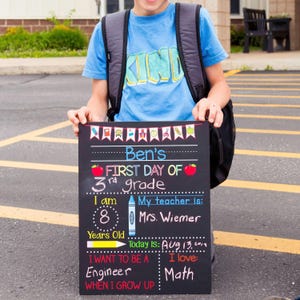 KIND
Ben's
FIRST DAY OF
3rd grade
I am
8
Years Old
My teacher is:
Mrs. Wiemer
Today is: Aug 13,
I WANT TO BE A
Engineer
WHEN I GROW UP
I love:
Math